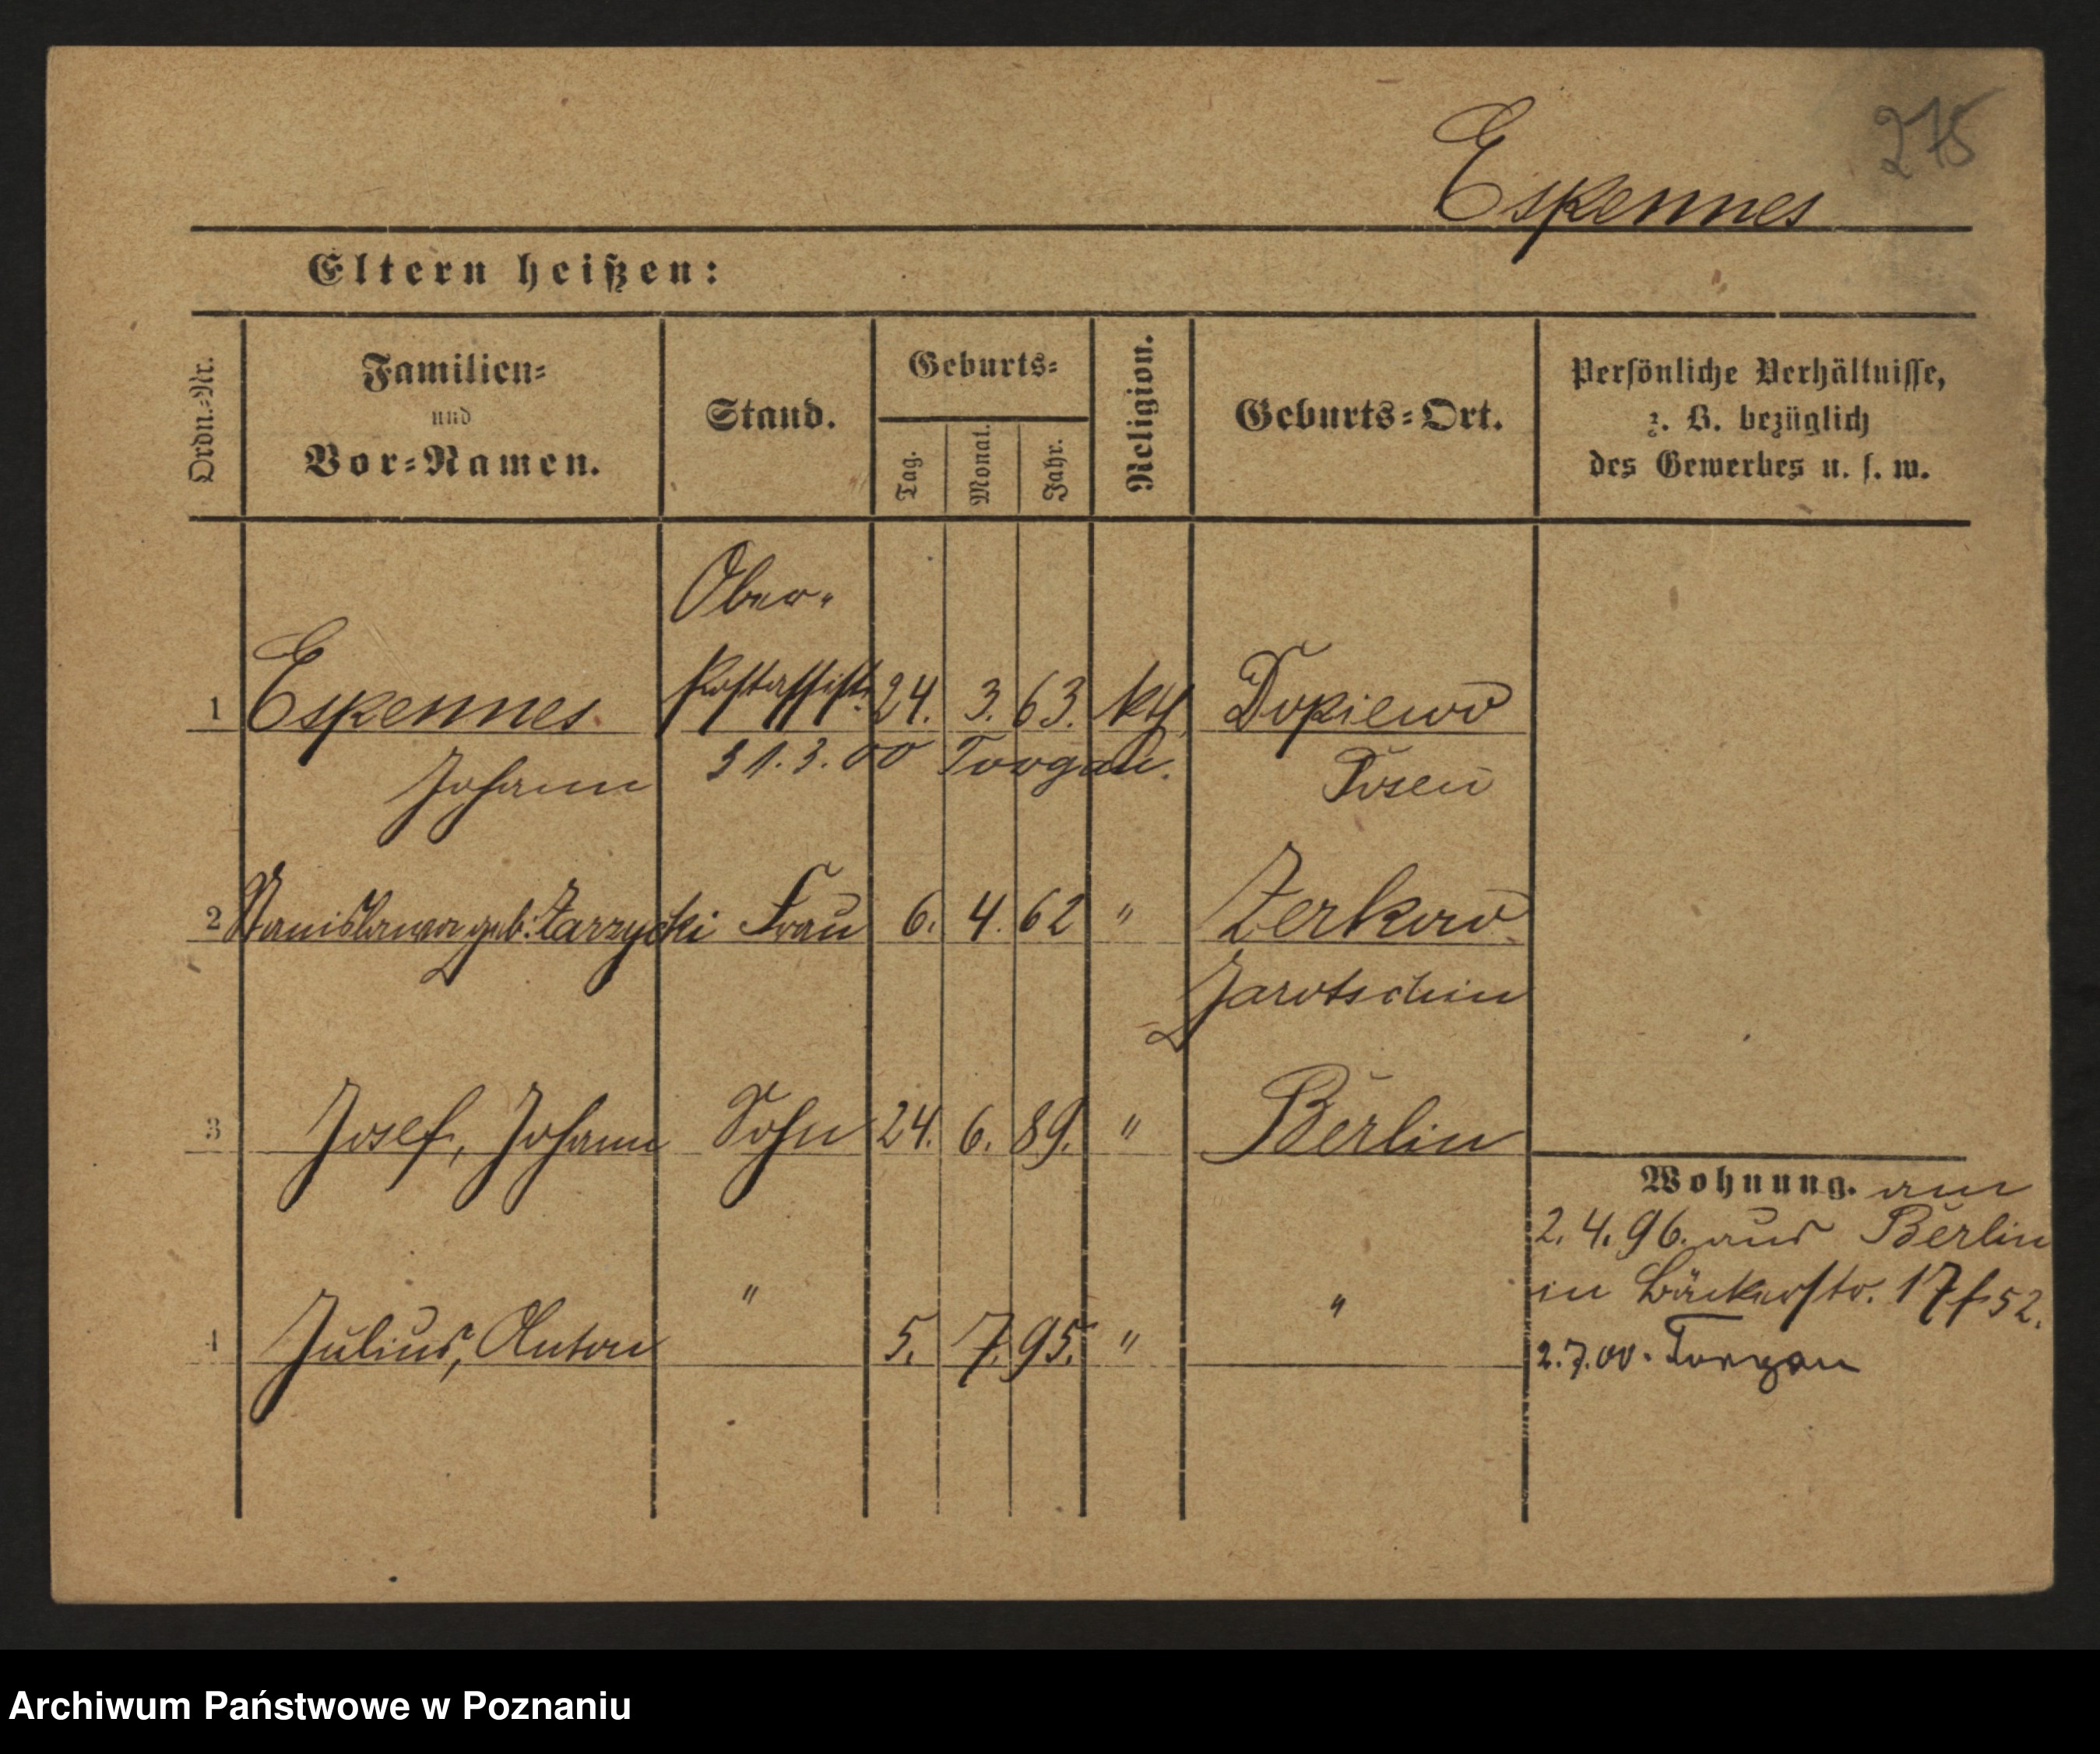 275
Eskennes
Eltern heißen:
Ordn.-Nr. Familien- und Vor-Namen. Stand. Geburts- Tag. Monat. Jahr. Religion. Geburts-Ort. Persönliche Verhältnisse, z. B. bezüglich des Gewerbes u. s. w.
Ober-
1 Eskennes Postassist. 24. 3. 63. kth Dopiewo
Johann 31.3.00 Torgau. Posen
2 Stanislawa geb. Zarzycki Frau 6. 4. 62 " Zerkow
Jarotschin
3 Josef, Johann Sohn 24. 6. 89. " Berlin
Wohnung. am
2. 4. 96. aus Berlin
in Bäckerstr. 17
4 Julius, Anton " 5. 7. 95. " "
2.7.00. Torgau
Archiwum Państwowe w Poznaniu